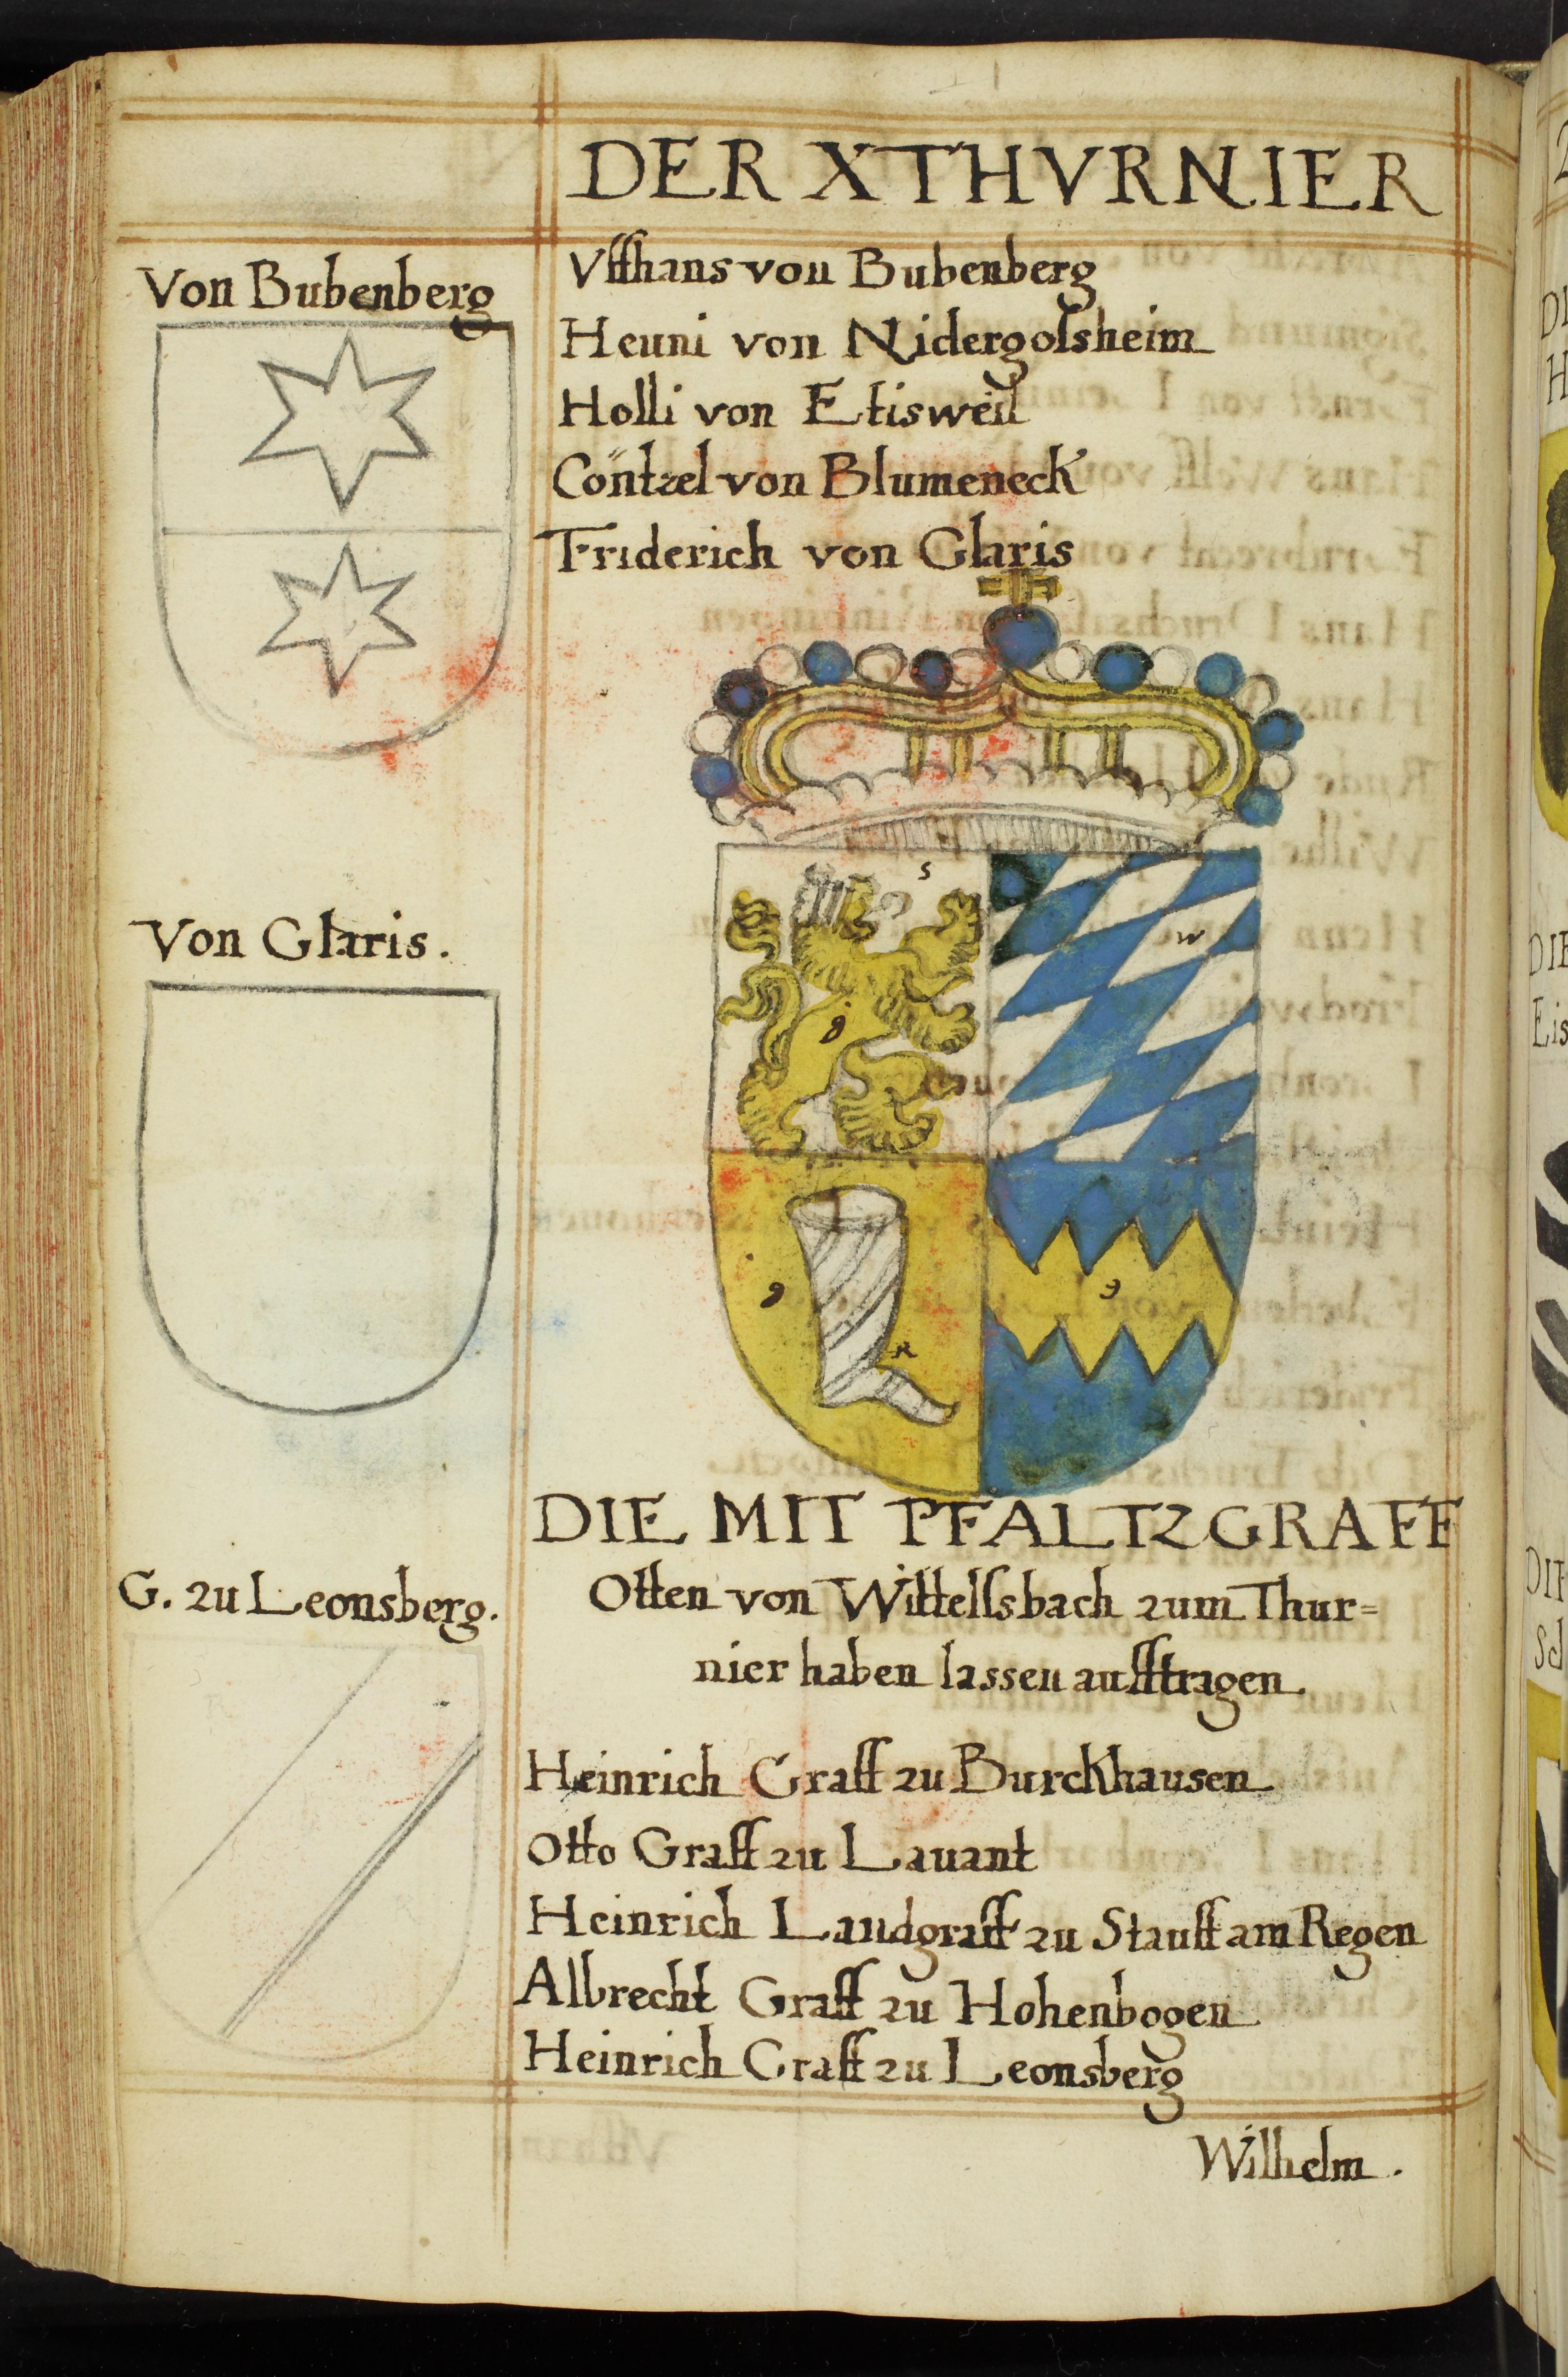 DER X THVRNIER
Von Bubenberg
Vffhans von Bubenberg
Heuni von Nidergolsheim
Holli von Etisweil
Cöntzel von Blumeneck
Friderich von Glaris
Von Glaris.
s
w
g
g
g
R
DIE MIT PFALTZGRAFF
Otten von Wittelsbach zum Thur=
nier haben lassen aufftragen.
G. zu Leonsberg.
Heinrich Graff zu Burckhausen
Otto Graff zu Lauant
Heinrich Landgraff zu Stauff am Regen
Albrecht Graff zu Hohenbogen
Heinrich Graff zu Leonsberg
Wilhelm.